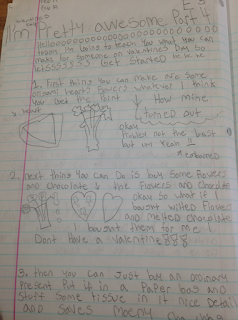 I'm Pretty awesome Part 4
I'm going to teach you what you can
make for someone on valentines Day so
Get Started
1. First thing you can make are some
origami hearts flowers whatever I think
you Get the Point
How mine
turned out
1. heart
okay
maybe not the best
but um Yeah !!
*embarrassed
2. next thing You can Do is buy some flowers
AND chocolate &
the Flowers AND chocolate
okay so what if I
bought wilted flowers
and melted chocolate
I bought them for me
Dont have a valentine
3. then you can Just buy an ordinary
present Put it in a Paper bag and
Stuff Some tissue in it nice Detail
AND Saves Moeny